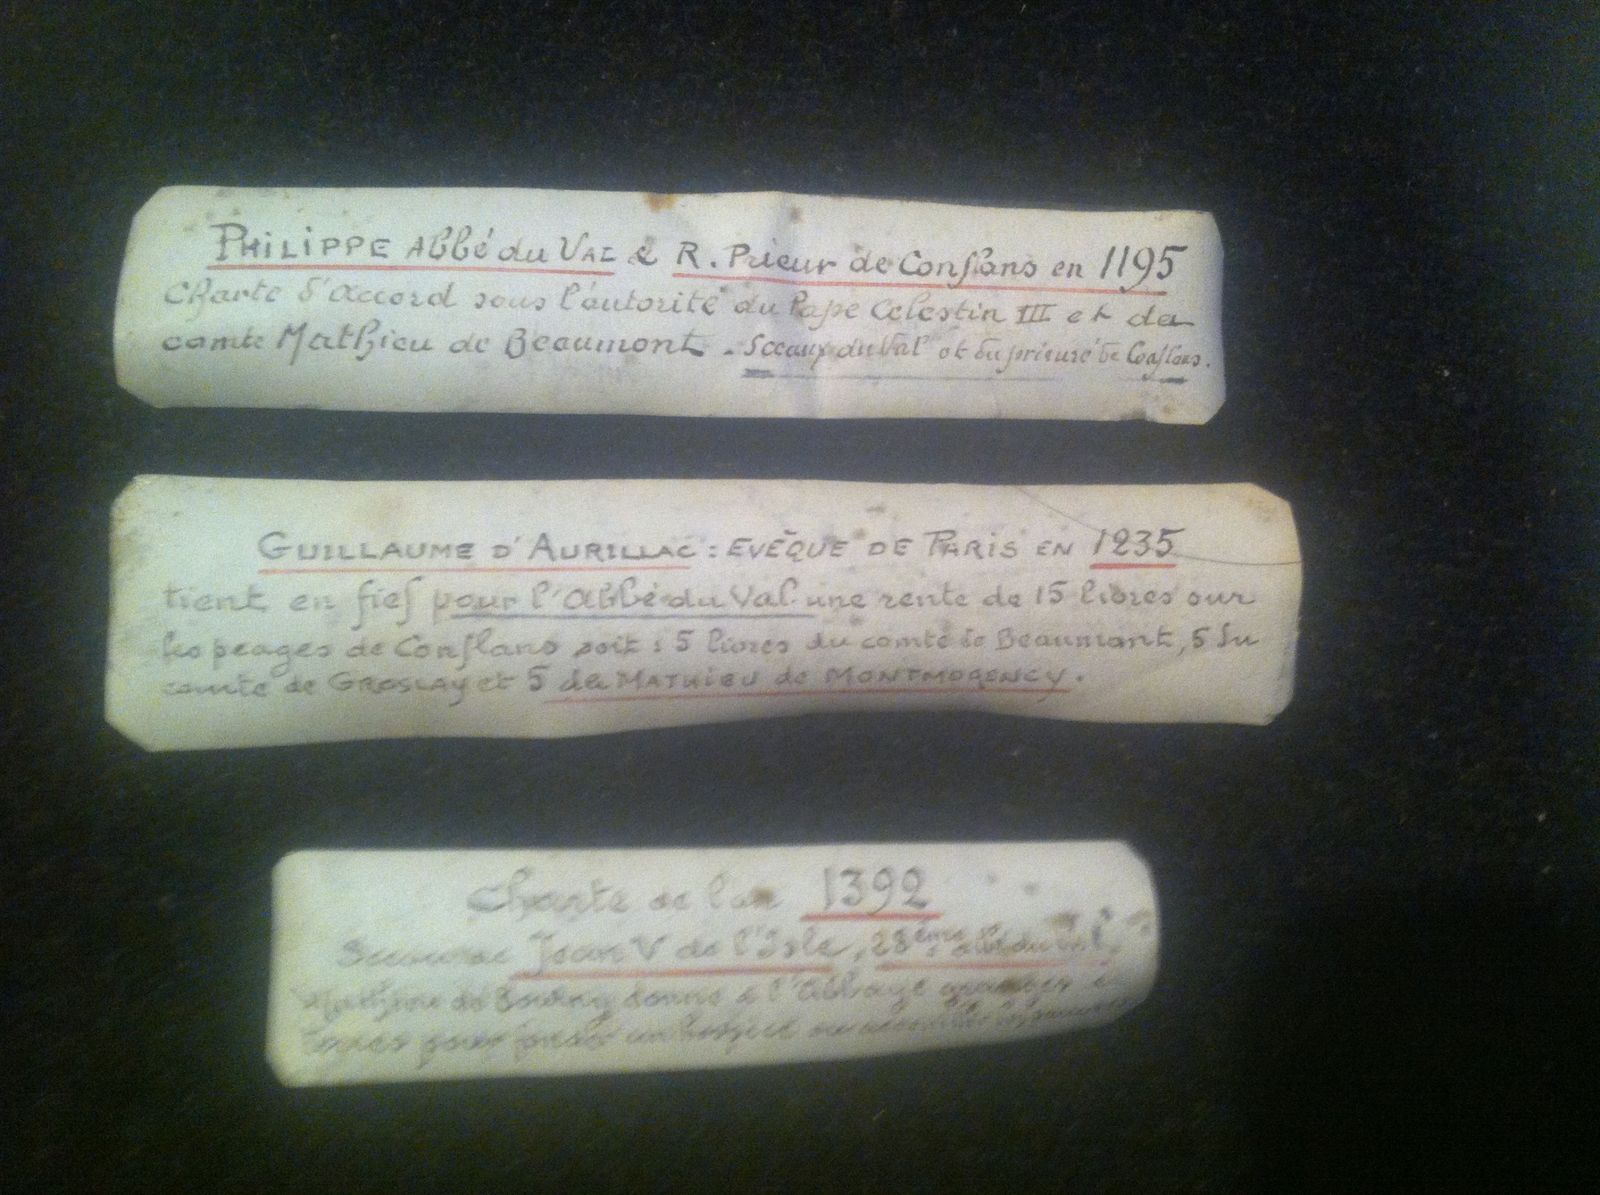 PHILIPPE Abbé du VAL & R. Prieur de Conflans en 1195
Charte d'accord sous l'autorité du Pape Celestin III et du
comte Mathieu de Beaumont. Sceaux du Val et du prieuré de Conflans.
GUILLAUME D'AURILLAC : EVÊQUE DE PARIS EN 1235
tient en fief pour l'Abbé du Val une rente de 15 livres sur
les peages de Conflans soit : 5 livres du comte de Beaumont, 5 du
comte de GROSLAY et 5 de MATHIEU de MONTMORENCY.
Charte de l'an 1392
Jean V de l'Isle, 28ème abbé du Val,
Mathieu de donne à l'Abbaye
pour fonder un